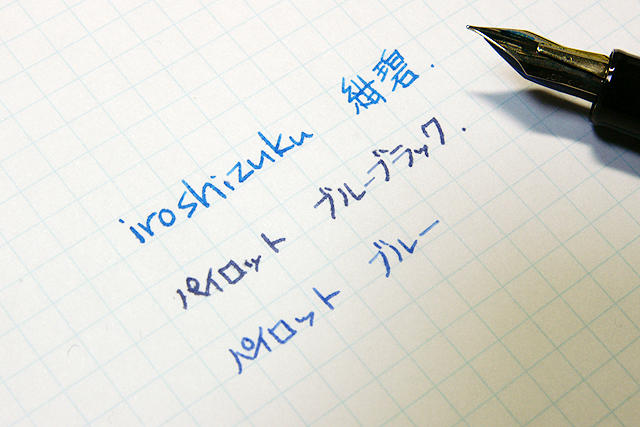 iroshizuku 紺碧.
パイロット ブルーブラック.
パイロット ブルー